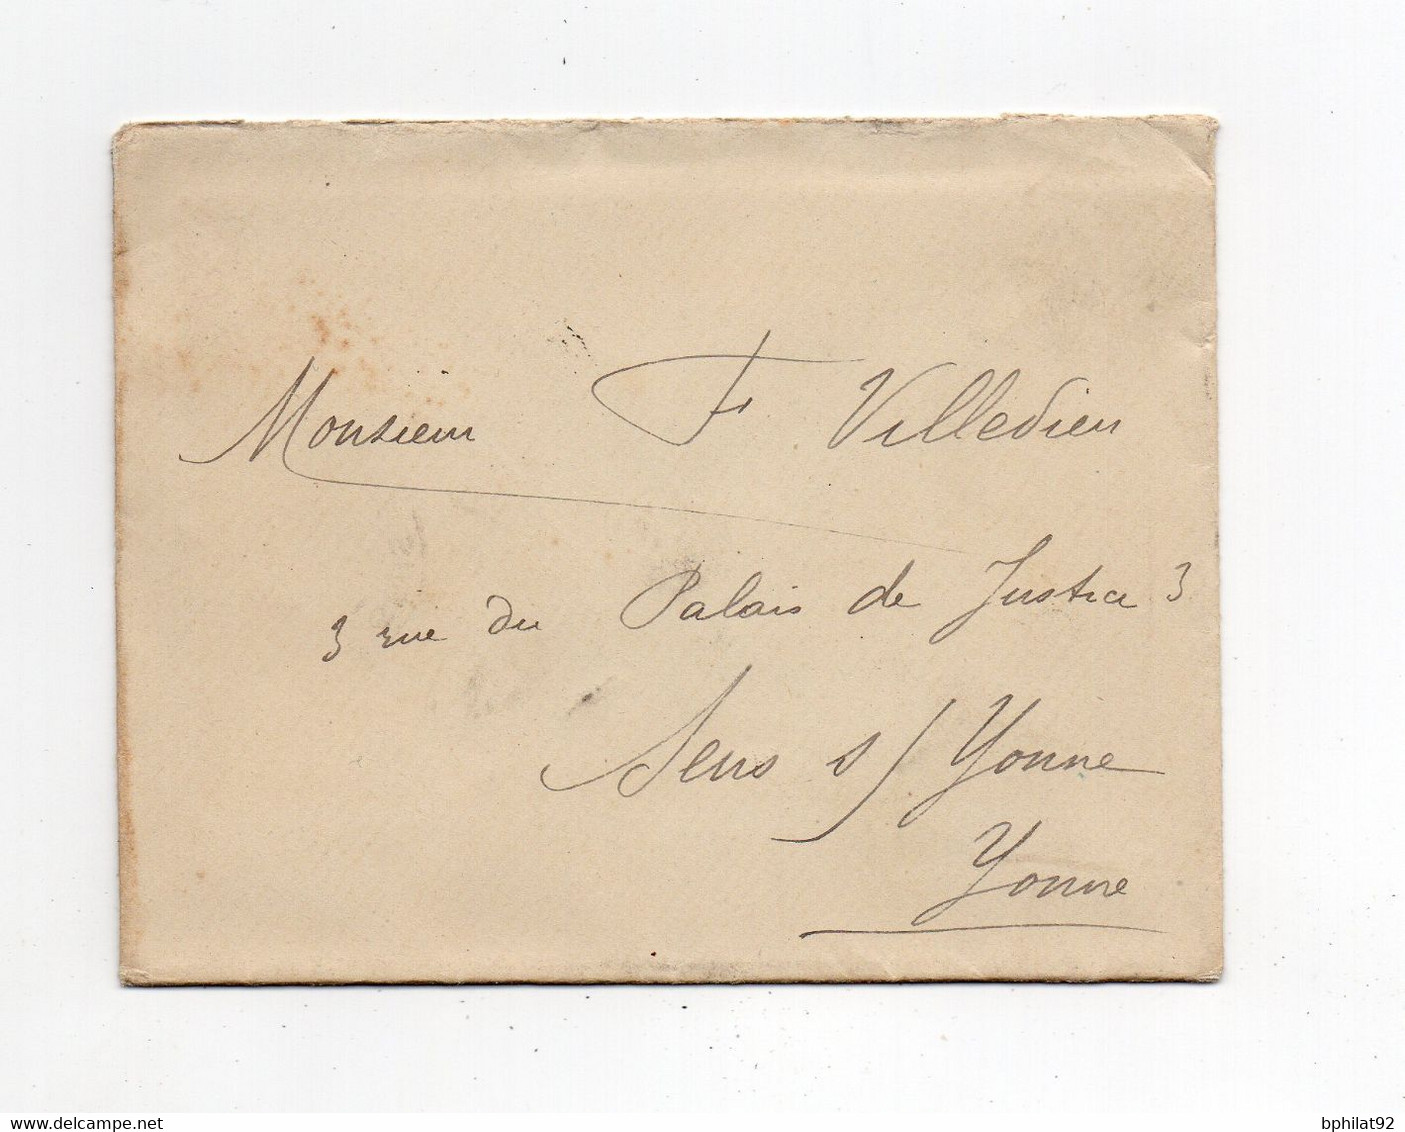 Monsieur F Villedieu
3 rue du Palais de Justice 3
Sens s/Yonne
Yonne
www.delcampe.net
bphilat92